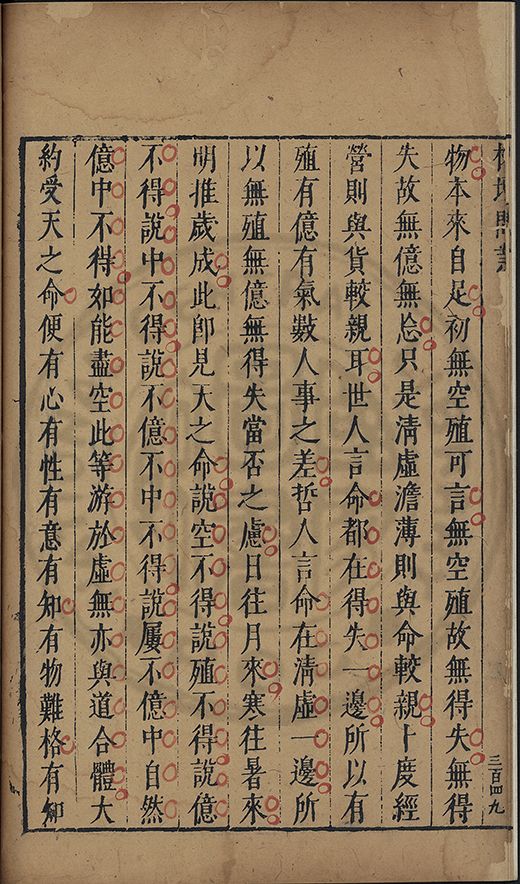 物本來自足初無空殖可言無空殖故無得失無得
失故無億無忩只是清虛澹薄則與命較親卜度經
營則與貨較親耳世人言命都在得失一邊所以有
殖有億有氣數人事之差哲人言命在清虛一邊所
以無殖無億無得失當否之慮日往月來寒往暑來
明推歲成此即見天之命說空不得說殖不得說億
不得說中不得說不億不中不得說屢不億中自然
億中不得如能盡空此等游於虛無亦與道合體大
約受天之命便有心有性有意有知有物難格有知
三百四九